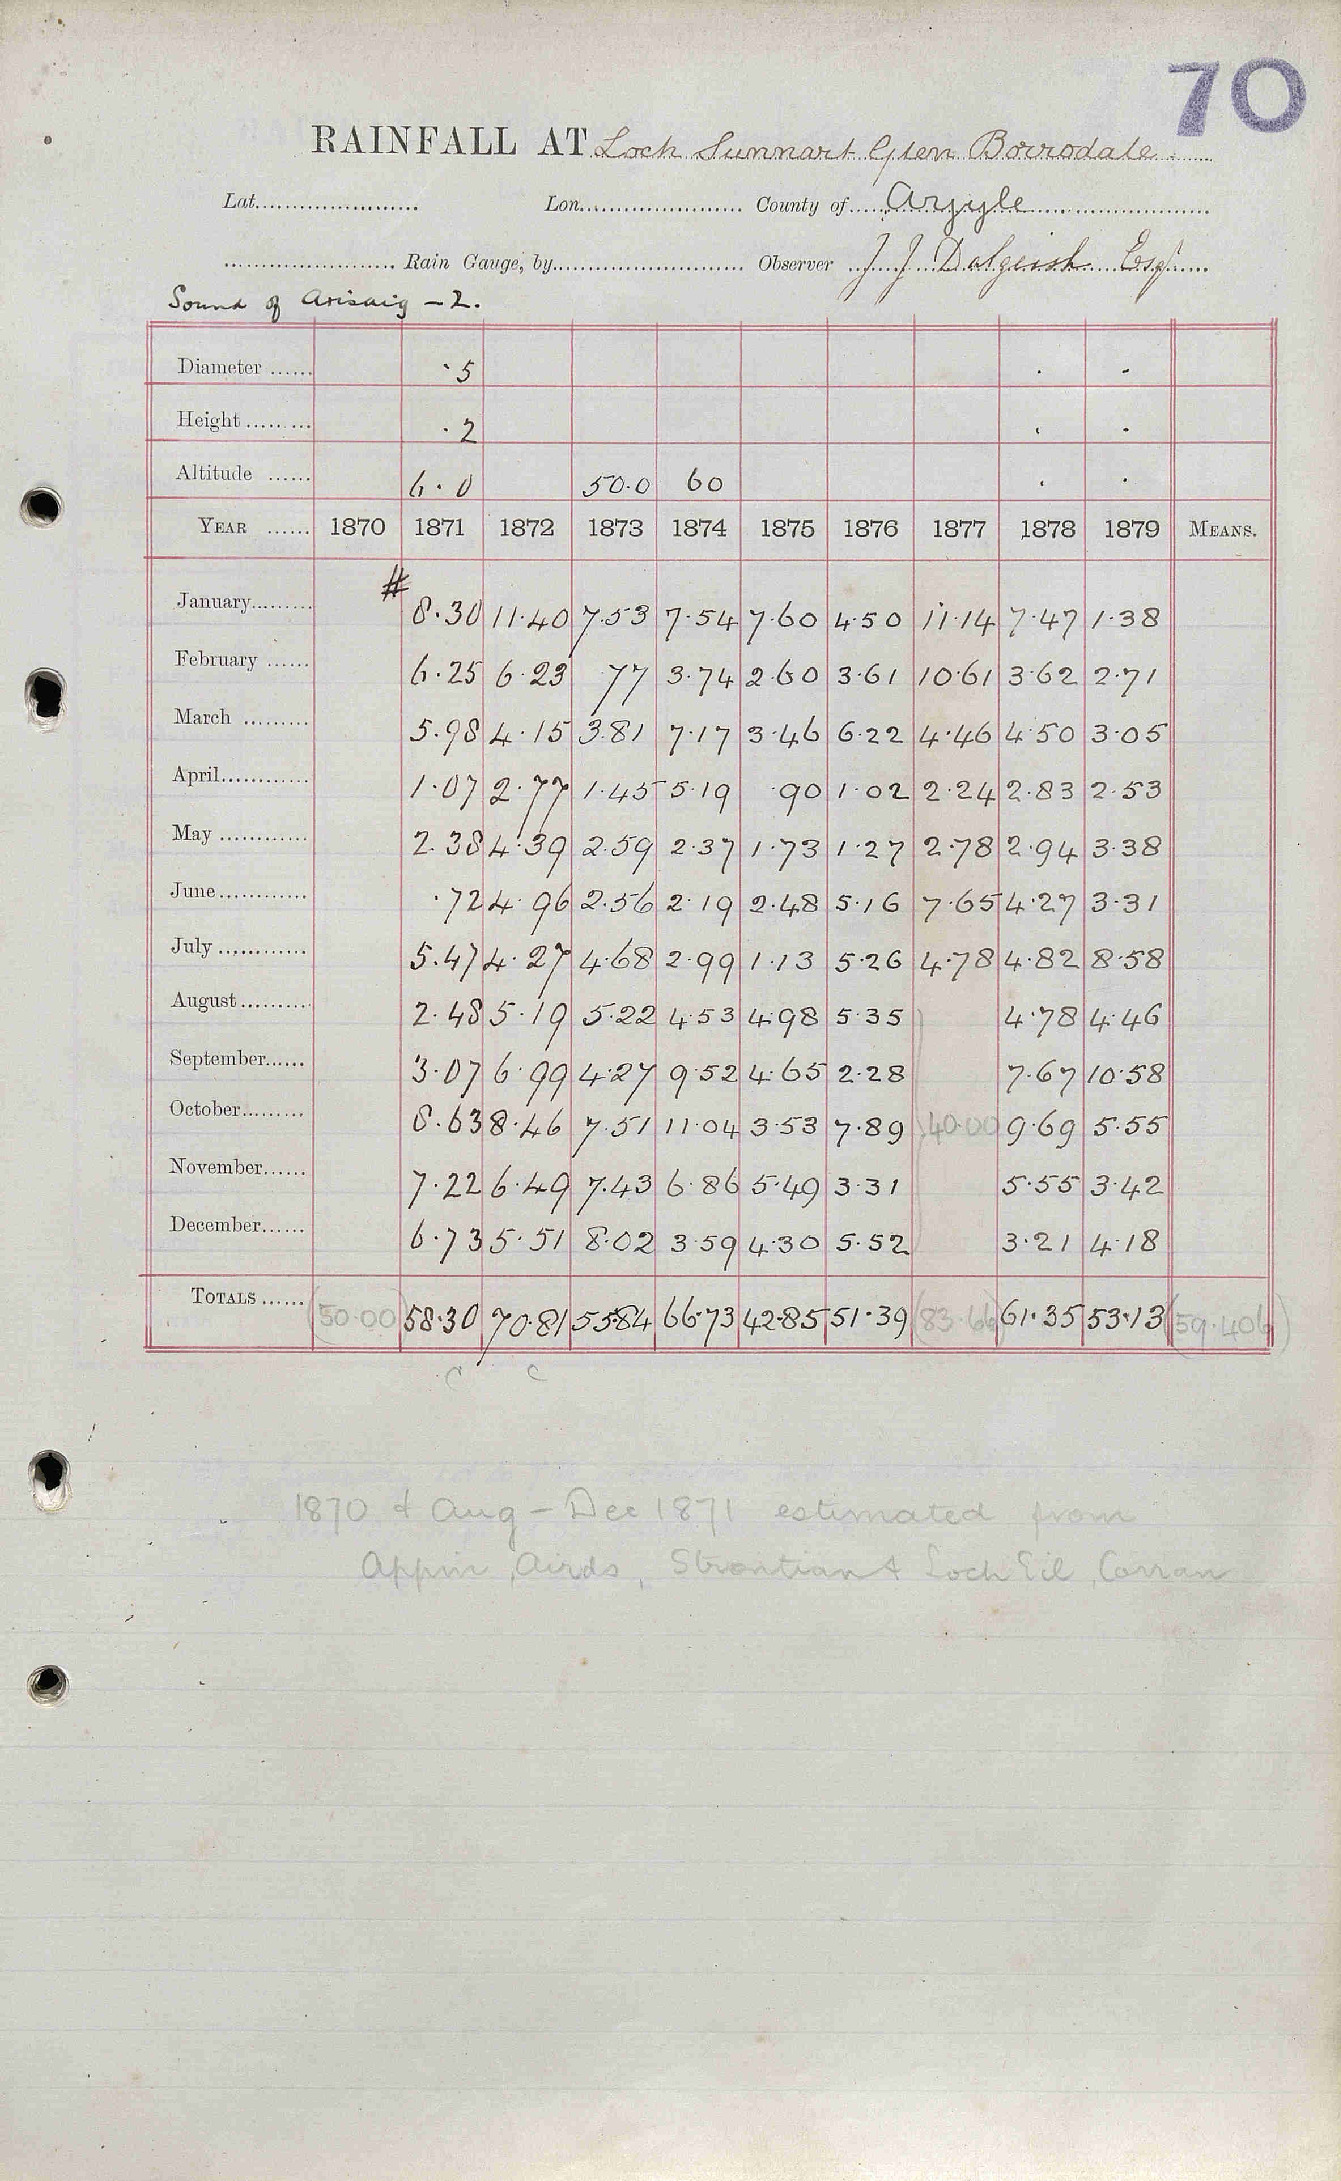 70
RAINFALL AT Loch Sunnart Glen Borrodale
Lat. Lon. County of Argyle
Rain Gauge, by Observer J. J. Dalgeish Esqr
Sound of Arisaig - 2.
Diameter ...... ·5 · ·
Height ......... ·2 · ·
Altitude ...... 6·0 50·0 60 · ·
YEAR ...... 1870 1871 1872 1873 1874 1875 1876 1877 1878 1879 MEANS.
January......... # 8·30 11·40 7·53 7·54 7·60 4·50 11·14 7·47 1·38
February ...... 6·25 6·23 77 3·74 2·60 3·61 10·61 3·62 2·71
March ......... 5·98 4·15 3·81 7·17 3·46 6·22 4·46 4·50 3·05
April............ 1·07 2·77 1·45 5·19 ·90 1·02 2·24 2·83 2·53
May ............ 2·38 4·39 2·59 2·37 1·73 1·27 2·78 2·94 3·38
June............ ·72 4·96 2·56 2·19 2·48 5·16 7·65 4·27 3·31
July ............ 5·47 4·27 4·68 2·99 1·13 5·26 4·78 4·82 8·58
August.......... 2·48 5·19 5·22 4·53 4·98 5·35 4·78 4·46
September...... 3·07 6·99 4·27 9·52 4·65 2·28 7·67 10·58
October......... 8·63 8·46 7·51 11·04 3·53 7·89 40·00 9·69 5·55
November...... 7·22 6·49 7·43 6·86 5·49 3·31 5·55 3·42
December...... 6·73 5·51 8·02 3·59 4·30 5·52 3·21 4·18
TOTALS ...... (50·00) 58·30 70·81 55·84 66·73 42·85 51·39 (83·66) 61·35 53·13 (59·406)
C C
1870 & Aug - Dec 1871 estimated from
Appin, Airds, Strontian & Loch Eil, Corran